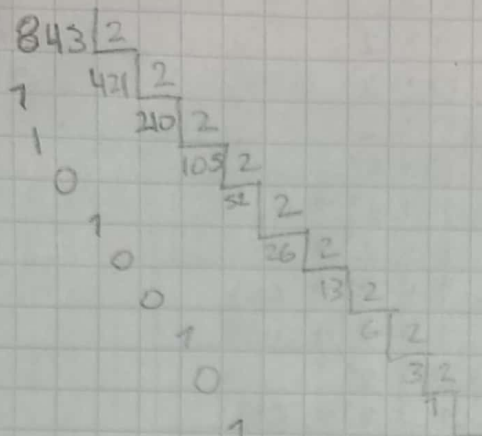 843 2
421 2
1
210 2
1
105 2
0
52 2
1
26 2
0
13 2
0
6 2
1
3 2
0
1
1